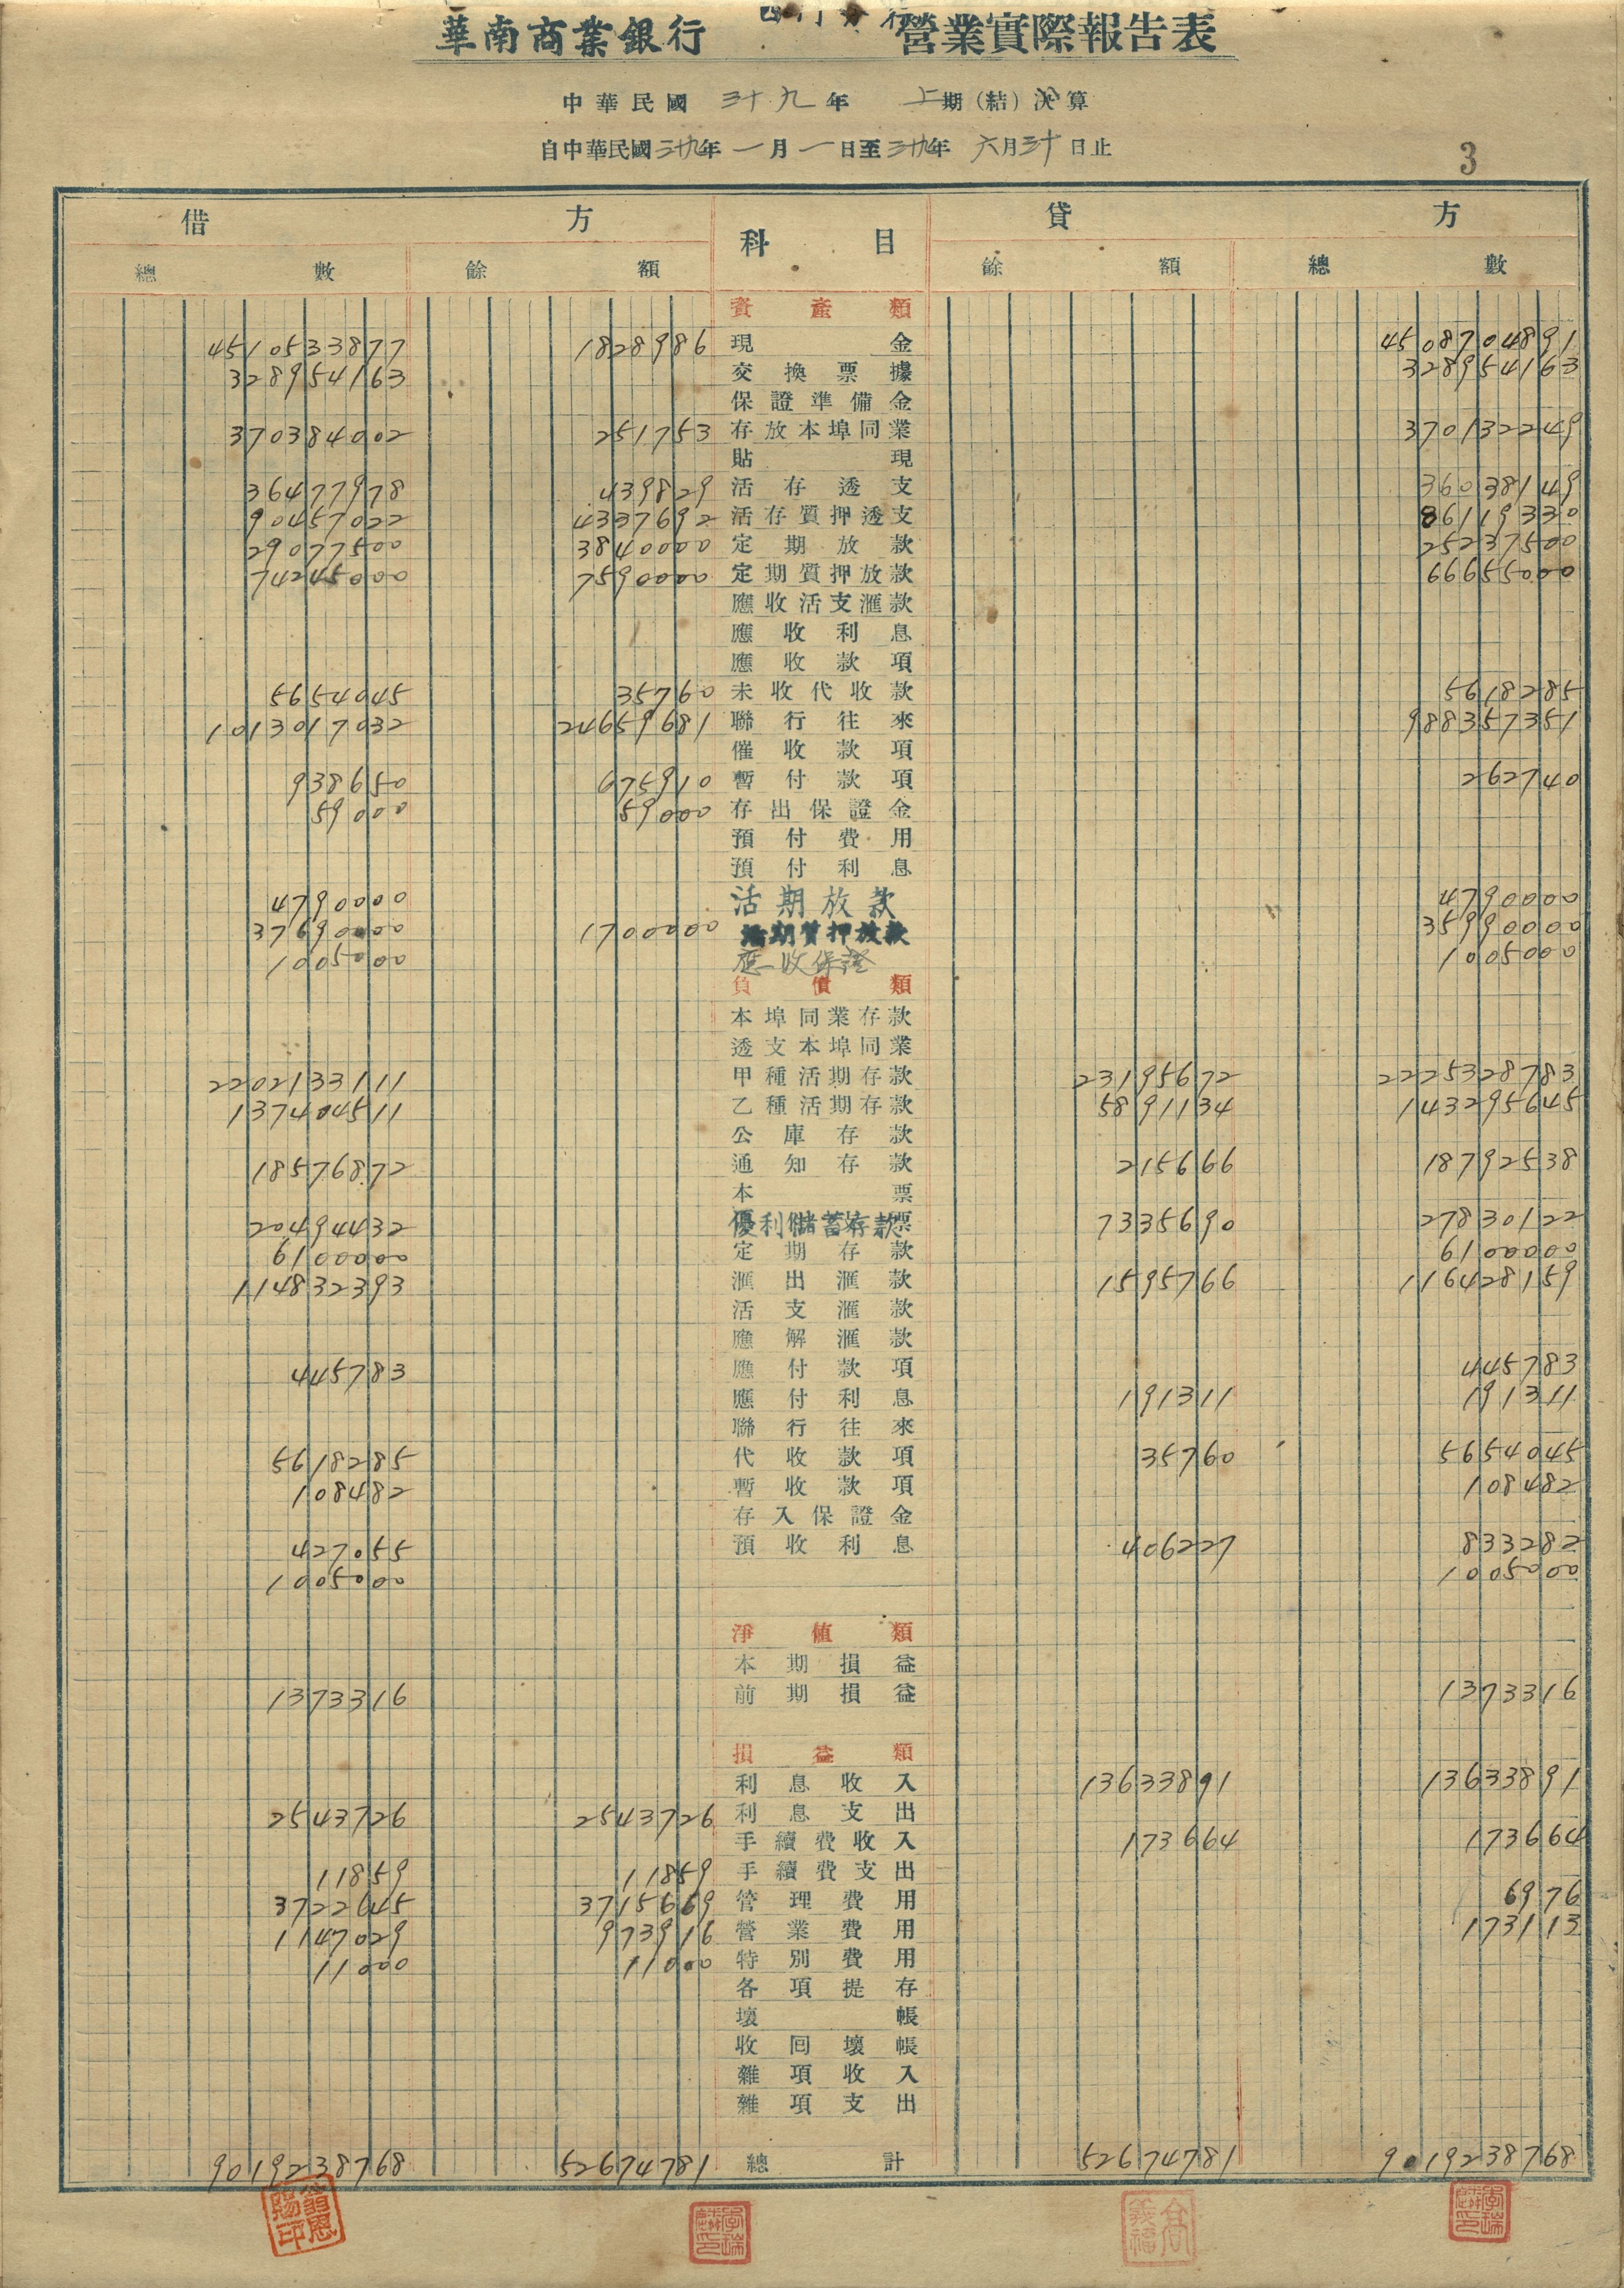 華南商業銀行 西門分行 營業實際報告表
中華民國 三十九 年 上 期(結)決算
自中華民國三十九年一月一日至三十九年六月三十日止
3
借方 科目 貸方
總數 餘額 餘額 總數
資產類
4510533877 1828986 現金 4508704891
328954163 交換票據 328954163
保證準備金
370384002 251753 存放本埠同業 370132249
貼現
36477978 439829 活存透支 36038149
90457022 4337692 活存質押透支 86119330
29077500 3840000 定期放款 25237500
74245000 7590000 定期質押放款 66655000
應收活支滙款
應收利息
應收款項
5654045 35760 未收代收款 5618285
1013017032 24659681 聯行往來 988357351
催收款項
938650 675910 暫付款項 262740
59000 59000 存出保證金
預付費用
預付利息
4790000 活期放款 4790000
37690000 1700000 活期質押放款 35990000
1005000 應收保證 1005000
負債類
本埠同業存款
透支本埠同業
2202133111 甲種活期存款 23195672 2225328783
137404511 乙種活期存款 5891134 143295645
公庫存款
18576872 通知存款 215666 18792538
本票
20494432 優利儲蓄存款 7335690 27830122
6100000 定期存款 6100000
114832393 滙出滙款 1595766 116428159
活支滙款
應解滙款
445783 應付款項 445783
應付利息 191311 191311
聯行往來
5618285 代收款項 35760 5654045
108482 暫收款項 108482
存入保證金
427055 預收利息 406227 833282
1005000 1005000
淨值類
本期損益
1373316 前期損益 1373316
損益類
利息收入 13633891 13633891
2543726 2543726 利息支出
手續費收入 173664 173664
11859 11859 手續費支出
3722645 3715669 管理費用 6976
1147029 973916 營業費用 173113
11000 11000 特別費用
各項提存
壞帳
收回壞帳
雜項收入
雜項支出
9019238768 52674781 總計 52674781 9019238768